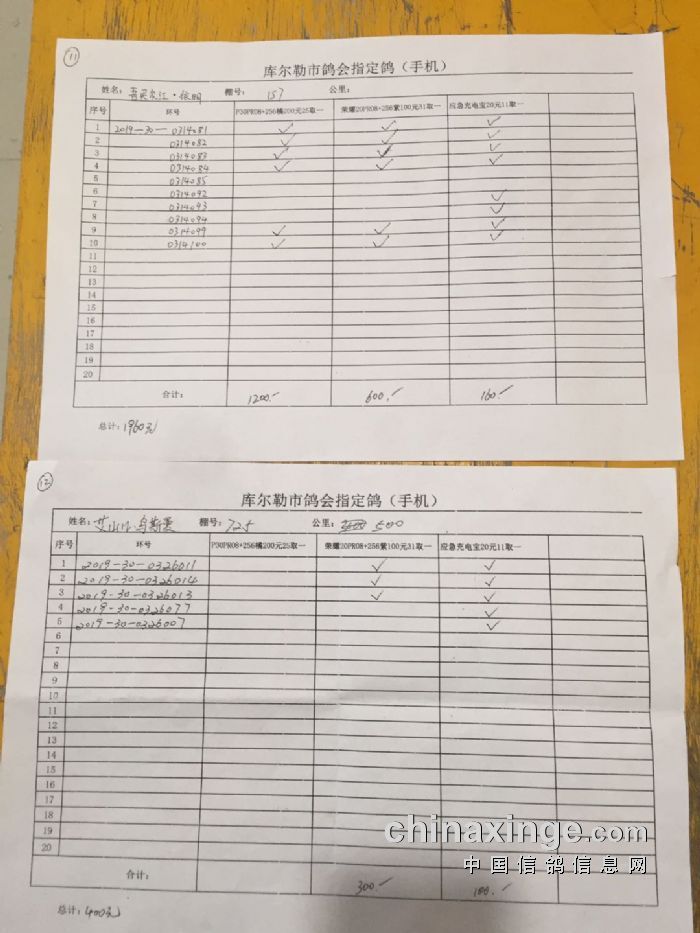 11
库尔勒市鸽会指定鸽（手机）
姓名： 棚号： 157 公里：
序号 环号 P30PRO8+256橘200元25取一 荣耀20PRO8+256紫100元31取一 应急充电宝20元11取一
1 2019-30-0314081 ✓ ✓ ✓
2 0314082 ✓ ✓ ✓
3 0314083 ✓ ✓ ✓
4 0314084 ✓ ✓ ✓
5 0314085
6 0314092 ✓
7 0314093 ✓
8 0314094 ✓
9 0314099 ✓ ✓ ✓
10 0314100 ✓ ✓
11
12
13
14
15
16
17
18
19
20
合计： 1200.- 600.- 160.-
总计：1960元
12
库尔勒市鸽会指定鸽（手机）
姓名： 棚号：725 公里： 500
序号 环号 P30PRO8+256橘200元25取一 荣耀20PRO8+256紫100元31取一 应急充电宝20元11取一
1 2019-30-0326011 ✓ ✓
2 2019-30-0326014 ✓ ✓
3 2019-30-0326013 ✓ ✓
4 2019-30-0326077 ✓
5 2019-30-0326007 ✓
6
7
8
9
10
11
12
13
14
15
16
17
18
19
20
合计： 300.- 100.-
总计：400元
chinaxinge.com
中国信鸽信息网